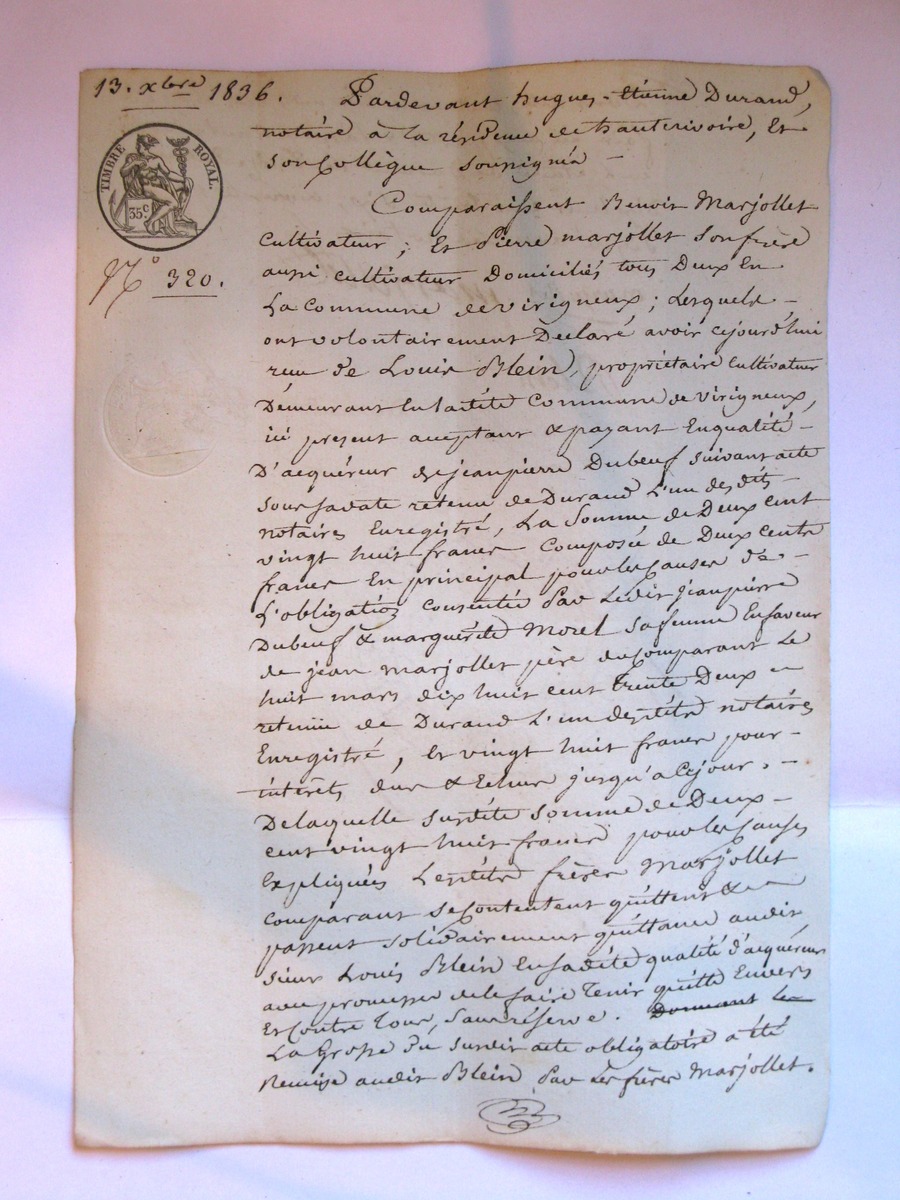 13. xbre 1836.
Pardevant hugues-étienne Durand,
notaire à la résidence de hauterivoire, Et
son Collègue soussignés —
TIMBRE ROYAL.
35c
Comparaissent Benoit Marjollet
Cultivateur ; Et Pierre marjollet son frère
N° 320.
aussi cultivateur Domiciliés tous Deux En
La Commune de virigneux ; Lesquels —
ont volontairement Déclaré avoir cejourd'hui
reçu de Louis Blein, propriétaire Cultivateur
Demeurant En ladite Commune de Virigneux,
ici présent acceptant & payant En qualité —
D'acquéreur de jeanpierre Dubeuf suivant acte
sous sa date retenu de Durand L'un desdits —
notaires Enregistré, La Somme de Deux cent
vingt huit francs Composée de Deux cents
francs En principal pour les causes de —
L'obligation consentie Par Ledit jeanpierre
Dubeuf & marguerite Morel sa femme En faveur
de jean marjollet père des comparant Le
huit mars dix huit cent trente Deux —
retenue de Durand L'un desdits notaires
Enregistré, Et vingt huit francs pour —
intérêts dus & Echus jusqu'à Cejour. —
De laquelle susdite somme de Deux —
cent vingt huit francs pour les Causes
Expliquées Lesdits frères Marjollet
comparant se Contentent quittent & —
passent solidairement quittance audit
sieur Louis Blein En sadite qualité d'acquéreur
avec promesse de le faire Tenir quitte Envers
Et Contre Tous, sans réserve. Donnent Le
La Grosse du susdit acte obligatoire a été
Remise audit Blein Par Les frères Marjollet.